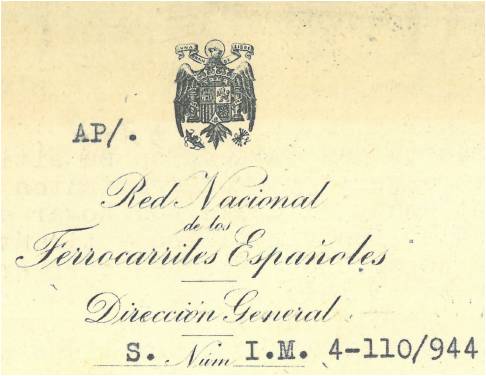 AP/.
Red Nacional
de los
Ferrocarriles Españoles
Dirección General
S. Núm I.M. 4-110/944